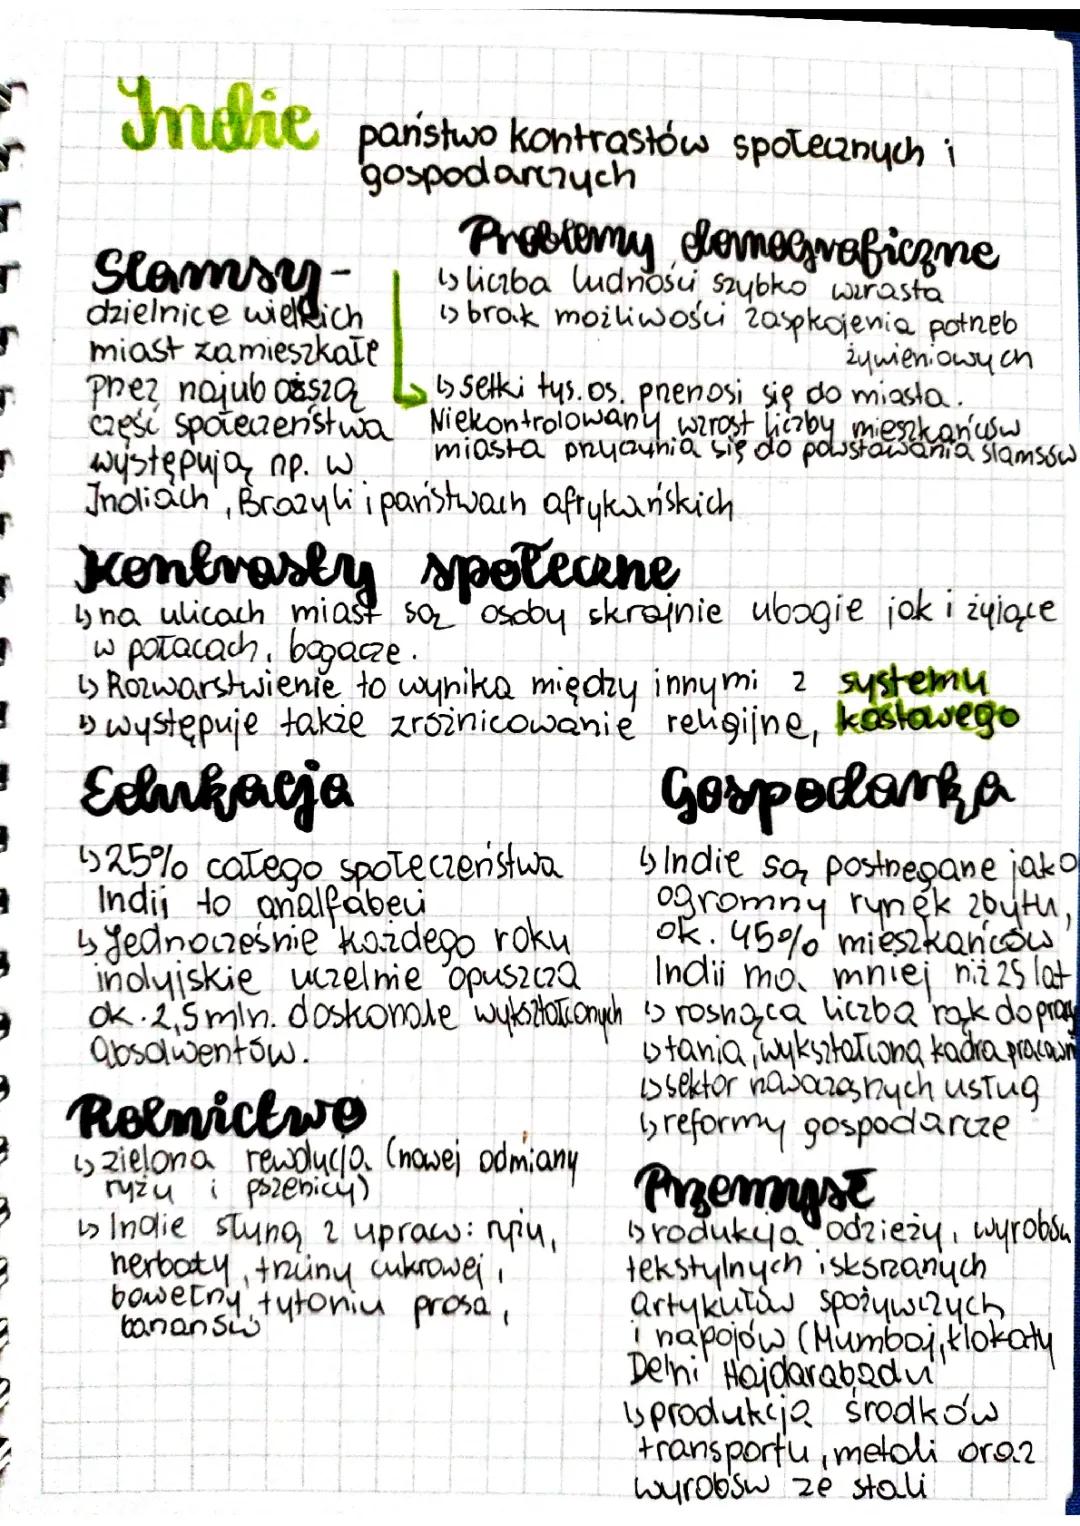 Indie
państwo kontrastów społecznych i
gospodarczych
Slamsy -
dzielnice wielkich
miast zamieszkałe
przez najuboższą
część społeczeństwa
występują np. w
Indiach, Brazyli i państwach afrykańskich
Problemy demograficzne
↳ liczba ludności szybko wzrasta
↳ brak możliwości zaspkojenia potrzeb
żywieniowych
↳ setki tys. os. przenosi się do miasta.
Niekontrolowany wzrost liczby mieszkańców
miasta przyczynia się do powstawania slamsów
Kontrasty społeczne
↳ na ulicach miast są osoby skrajnie ubogie jak i żyjące
w pałacach, bogacze.
↳ Rozwarstwienie to wynika między innymi z systemu
kastowego
↳ występuje także zróżnicowanie religijne,
Edukacja
↳ 25% całego społeczeństwa
Indii to analfabeci
↳ Jednocześnie każdego roku
indyjskie uczelnie opuszcza
ok. 2,5 mln. doskonale wykształconych
absolwentów.
Rolnictwo
↳ zielona rewolucja (nowej odmiany
ryżu i pszenicy)
↳ Indie słyną z upraw: ryżu,
herbaty, trzciny cukrowej,
bawełny, tytoniu prosa,
bananów
Gospodarka
↳ Indie są postrzegane jako
ogromny rynek zbytu,
ok. 45% mieszkańców
Indii ma mniej niż 25 lat
↳ rosnąca liczba rąk do pracy
↳ tania, wykształcona kadra pracown
↳ sektor nowoczesnych usług
↳ reformy gospodarcze
Przemysł
↳ rodukcja odzieży, wyrobów
tekstylnych i skórzanych
artykułów spożywczych
i napojów (Mumbaj,
Delhi Hajdarabadu
↳ produkcja środków
transportu, metali oraz
wyrobów ze stali